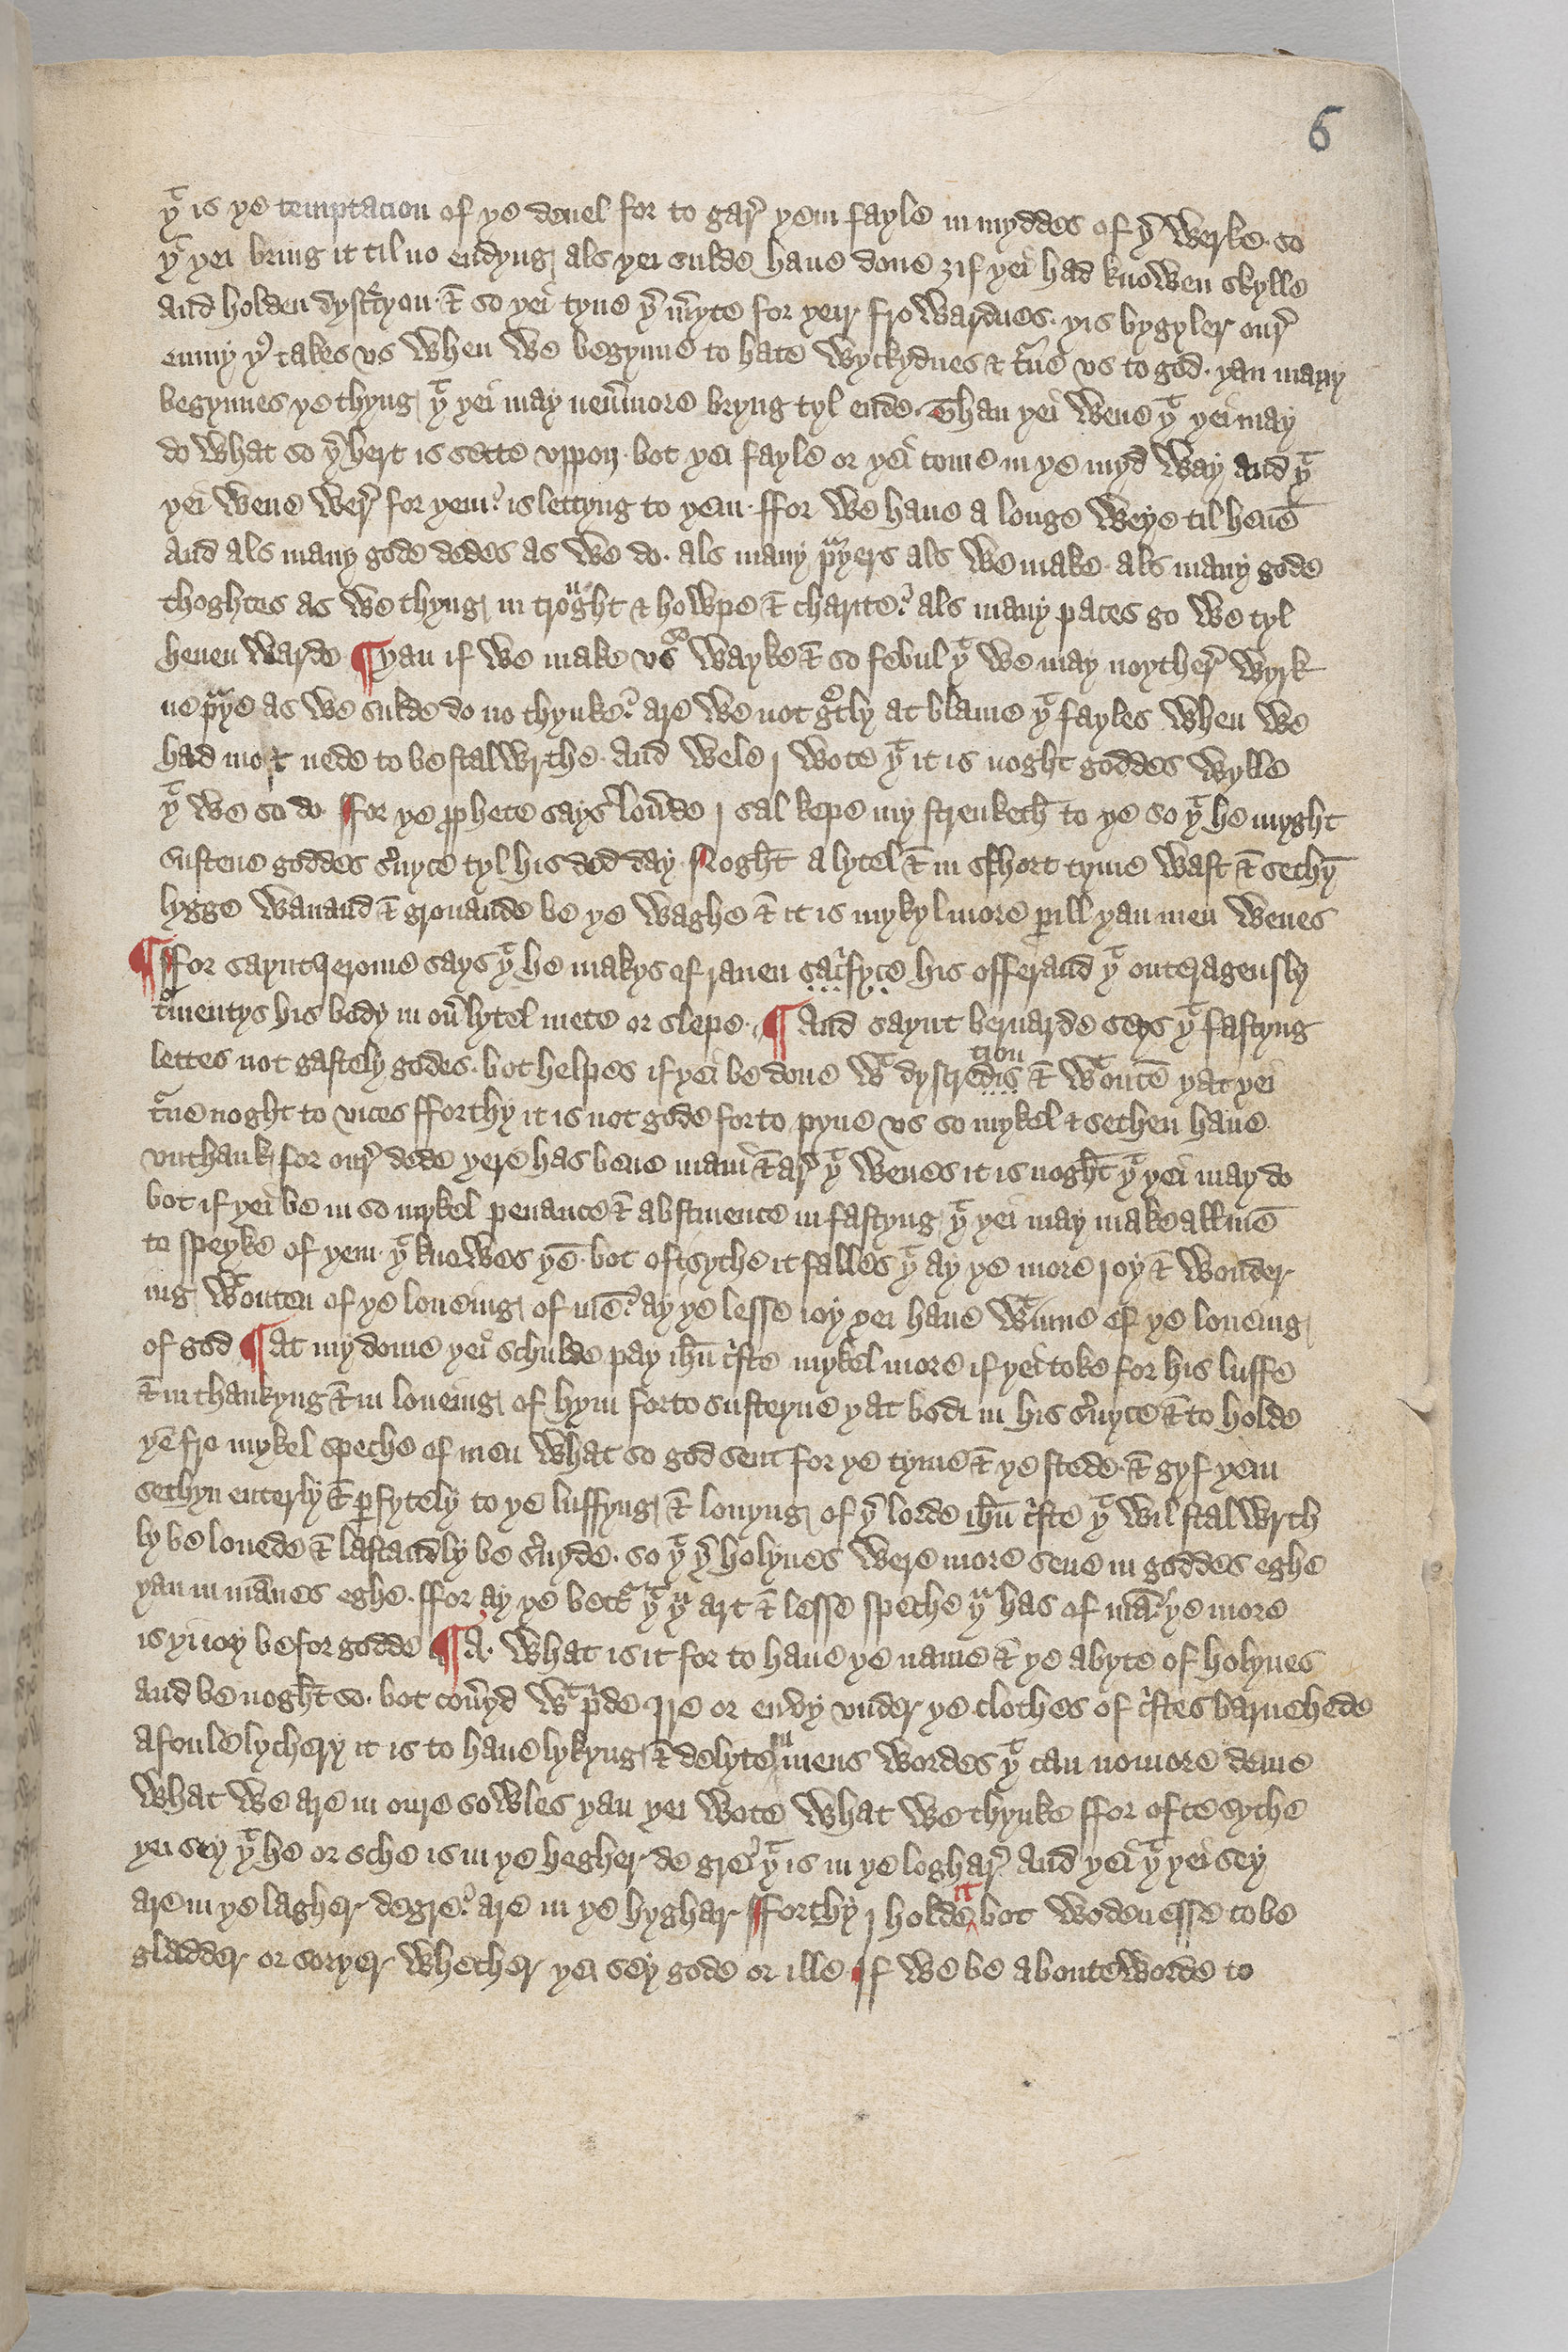 6
yͭ is ye temptacion of ye deuel for to garͬ yem fayle in myddes of yͬ werke. so
yͭ yei bring it til no endyng als yei sulde haue done ȝif yei had knowen skylle
and holden dyscͬcyon. & so yei tyne yͬ mͬyte for yeir frowardnes. yis bygyler ourͬ
enmy yͧs takes vs when we begynne to hate wyckydnes & tͧne vs to god. yan many
begynnes ye thyng yͭ yei may neuͬmore bryng tyl ende. Than yei wene yͭ yei may
do what so yͬ hert is sette vppon. bot yei fayle or yei come in ye myd way and yͭ
yei wene werͬ for yem? is lettyng to yem. ffor we haue a longe weye til heuē
And als many gode dedes as we do. als many pͣyers als we make. als many gode
thoghtes as we thyng in troͧght & howpe & charite? als many paces go we tyl
heuen warde ¶ yan if we make vs so wayke & so febul yͭ we may noytherͬ wyrk
ne pͣye as we sulde do no thynke? are we not gͬtly at blame yͭ fayles when we
had most nede to be stalwrthe. And wele j wote yͭ it is noght goddes wylle
yͭ we so do. ffor ye ꝓphete says louͬde j sal kepe my strenketh to ye so yͭ he myght
sustene goddes sͬuyce tyl his ded day. Noght a lytel & in schort tyme wast & sethyn̄
lygge wanand & gronande be ye waghe & it is mykyl more ꝑill yan men wenes
¶ ffor saynt Jerome says yͭ he makys of rauen sacͥfyce his offerand yͭ outeragensly
tͦmentys his body in ouͬ lytel mete or slepe. ¶ And saynt bernarde seys yͭ fastyng
lettes not gastely godes. bot helpes if yei be done wͭ dyscredistion & wͭouten̄ yat yei
tͧne noght to vices fforthy it is not gode forto pyne vs so mykel & sethen haue
vnthank for ourͬ dede yere has bene many & arͬ yͭ wenes it is noght yͭ yei may do
bot if yei be in so mykel penance & abstinence in fastyng yͭ yei may make all mē
to speyke of yem. yͭ knowes yē. bot oft syche it falles yͭ ay ye more joy & wonder
ing wͭouten of ye loueing of mē? ay ye lesse ioy yei haue wͭinne of ye loueing
of god ¶ At my dome yei schulde pay ihū cͥste mykel more if yei toke for his luffe
& in thankyng & in loueing of hym forto susteyne yat bodi in his sͬuyce & to holde
yē fro mykel speche of men what so god sent for ye tyme & ye stede. & gyf yem
sethyn enterly & ꝑfytely to ye luffyng & louyng of yͬ lorde ihū cͥste yͭ wil stalwrth
ly be louede & lastandly be sͬuyde. so yͭ yͬ holynes were more sene in goddes eghe
yan in mānes eghe. ffor ay ye betͬ yͭ yͧ art & lesse speche yͧ has of mā? ye more
is yi ioy befor godde ¶ A. what is it for to haue ye name & ye abyte of holynes
and be noght so. bot couͬyd wͭ pͥde jre or envy vnder ye clothes of cͥstes barnehede
a foule lychery it is to haue lykyng & delyte in mens wordes yͭ can nomore deme
what we are in oure sowles yan yei wote what we thynke ffor ofte syche
yei sey yͭ he or sche is in ye hegher de gre? yͭ is in ye logharͬ And yei yͭ yei sey
are in ye lagher degre? are in ye hyghar fforthy j holde it bot wodenesse to be
gladder or soryer whether yei sey gode or ille if we be aboutewarde to